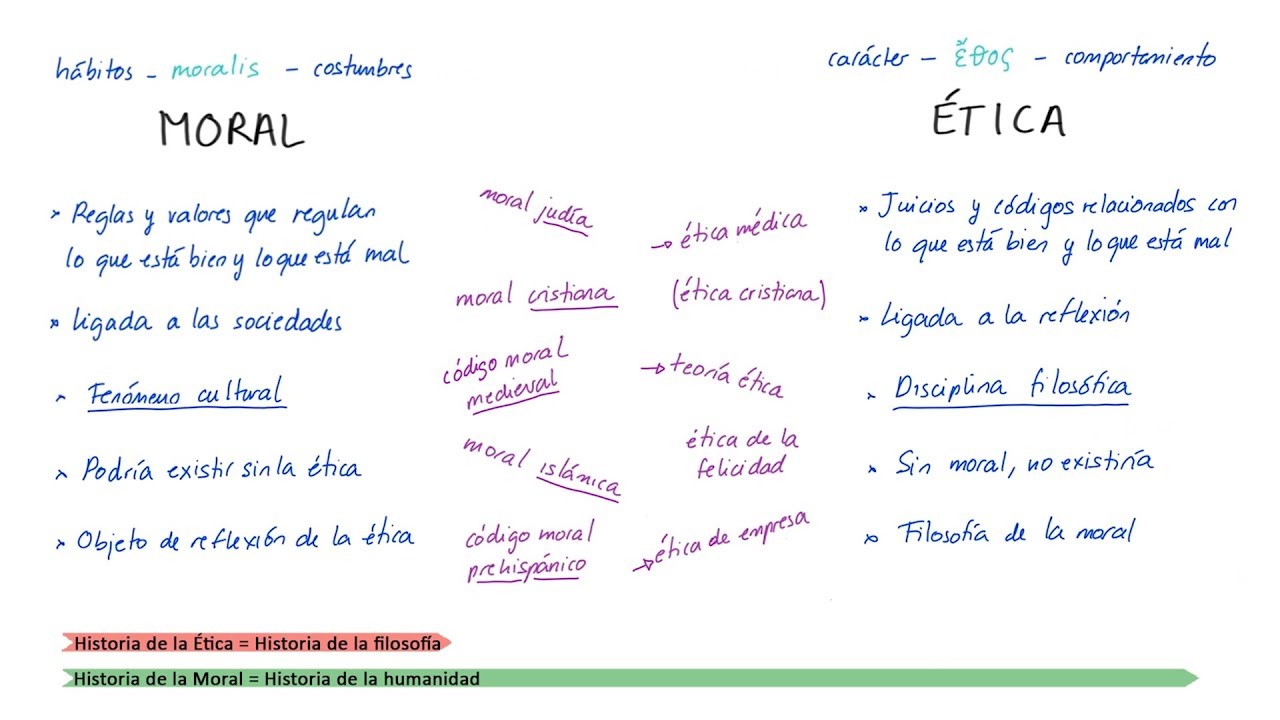 hábitos - moralis - costumbres
MORAL
* Reglas y valores que regulan
lo que está bien y lo que está mal
* Ligada a las sociedades
* Fenómeno cultural
* Podría existir sin la ética
* Objeto de reflexión de la ética
moral judía
moral cristiana
código moral
medieval
moral islánica
código moral
prehispánico
→ ética médica
(ética cristiana)
→ teoría ética
ética de la
felicidad
→ ética de empresa
carácter - ἔθος - comportamiento
ÉTICA
* Juicios y códigos relacionados con
lo que está bien y lo que está mal
* Ligada a la reflexión
* Disciplina filosófica
* Sin moral, no existiría
* Filosofía de la moral
Historia de la Ética = Historia de la filosofía
Historia de la Moral = Historia de la humanidad